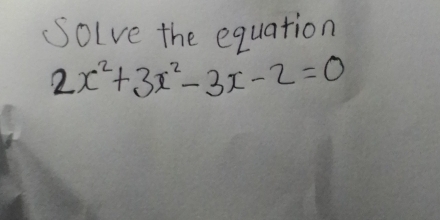 Solve the equation
2x²+3x²-3x-2=0